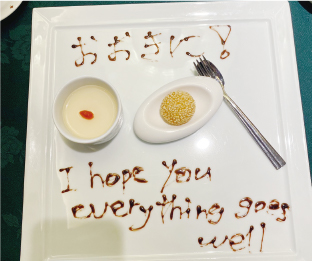 おおきに!
I hope you
everything goes
well